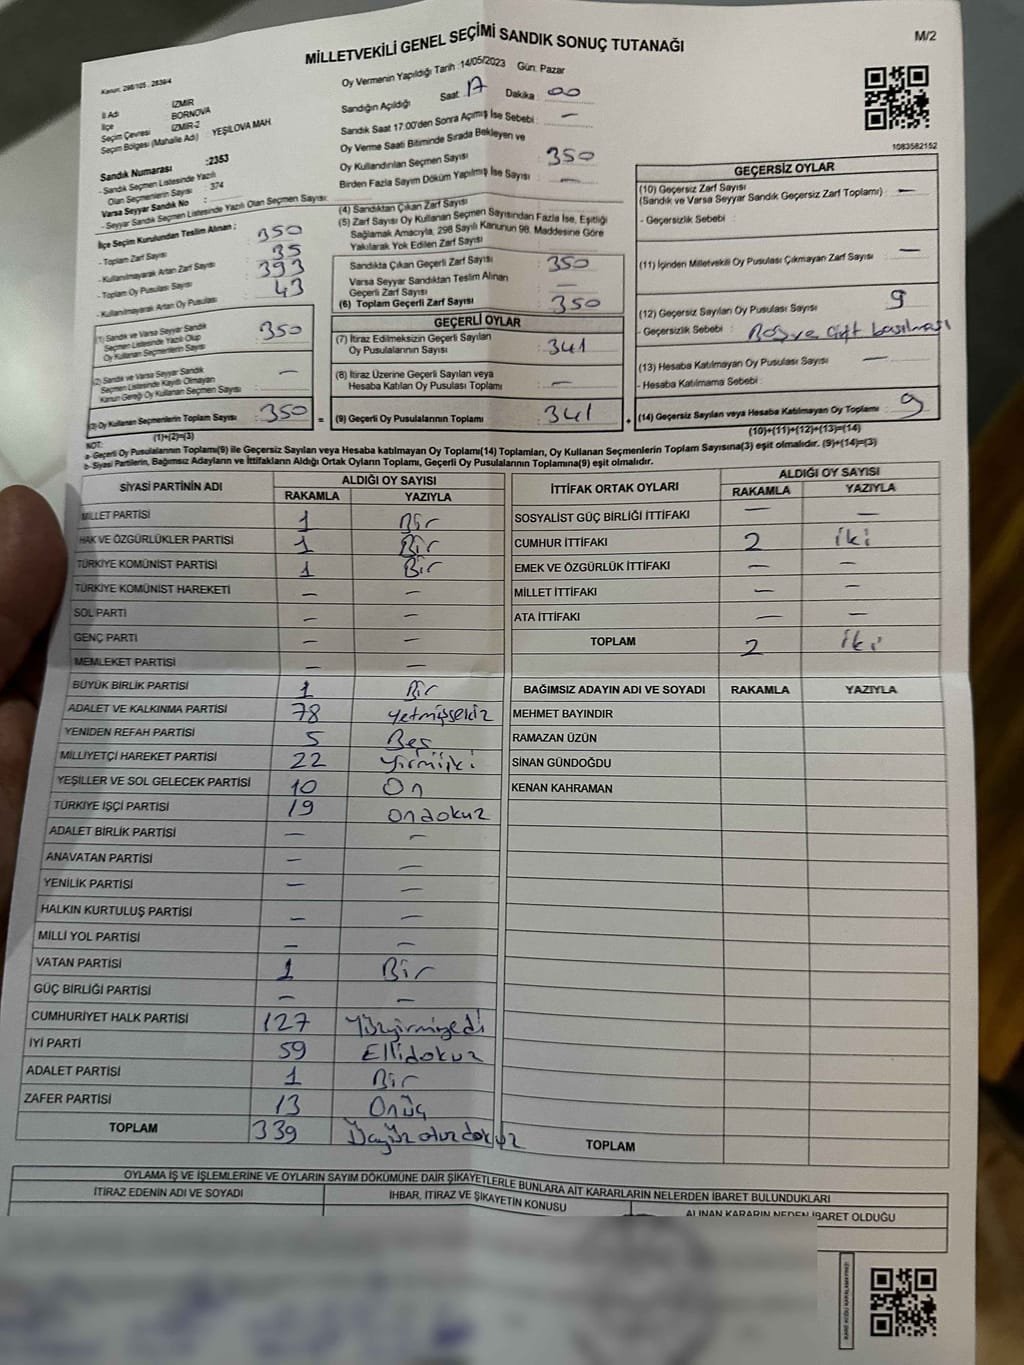 MİLLETVEKİLİ GENEL SEÇİMİ SANDIK SONUÇ TUTANAĞI
M/2
Kanun: 298/105 - 2839/4
İl Adı İZMİR
İlçe BORNOVA
Seçim Çevresi İZMİR-2
Seçim Bölgesi (Mahalle Adı) YEŞİLOVA MAH
Sandık Numarası :2353
- Sandık Seçmen Listesinde Yazılı
Olan Seçmenlerin Sayısı : 374
Varsa Seyyar Sandık No :
- Seyyar Sandık Seçmen Listesinde Yazılı Olan Seçmen Sayısı:
İlçe Seçim Kurulundan Teslim Alınan ;
- Toplam Zarf Sayısı 350
- Kullanılmayarak Artan Zarf Sayısı 35
- Toplam Oy Pusulası Sayısı 393
- Kullanılmayarak Artan Oy Pusulası 43
(1) Sandık ve Varsa Seyyar Sandık
Seçmen Listesinde Yazılı Olup
Oy Kullanan Seçmenlerin Sayısı : 350
(2) Sandık ve Varsa Seyyar Sandık
Seçmen Listesinde Kayıtlı Olmayan
Kanun Gereği Oy Kullanan Seçmen Sayısı : —
(3) Oy Kullanan Seçmenlerin Toplam Sayısı : 350 =
(1)+(2)=(3)
Oy Vermenin Yapıldığı Tarih :14/05/2023 Gün: Pazar
Sandığın Açıldığı Saat 17 Dakika 00
Sandık Saat 17:00'den Sonra Açımış İse Sebebi : —
Oy Verme Saati Bitiminde Sırada Bekleyen ve
Oy Kullandırılan Seçmen Sayısı : 350
Birden Fazla Sayım Döküm Yapılmış İse Sayısı : —
(4) Sandıktan Çıkan Zarf Sayısı
(5) Zarf Sayısı Oy Kullanan Seçmen Sayısından Fazla İse, Eşitliği
Sağlamak Amacıyla, 298 Sayılı Kanunun 98. Maddesine Göre
Yakılarak Yok Edilen Zarf Sayısı
Sandıkta Çıkan Geçerli Zarf Sayısı : 350
Varsa Seyyar Sandıktan Teslim Alınan
Geçerli Zarf Sayısı : —
(6) Toplam Geçerli Zarf Sayısı : 350
GEÇERLİ OYLAR
(7) İtiraz Edilmeksizin Geçerli Sayılan
Oy Pusulalarının Sayısı : 341
(8) İtiraz Üzerine Geçerli Sayılan veya
Hesaba Katılan Oy Pusulası Toplamı : —
(9) Geçerli Oy Pusulalarının Toplamı : 341 +
1083582152
GEÇERSİZ OYLAR
(10) Geçersiz Zarf Sayısı
(Sandık ve Varsa Seyyar Sandık Geçersiz Zarf Toplamı) : —
- Geçersizlik Sebebi :
(11) İçinden Milletvekili Oy Pusulası Çıkmayan Zarf Sayısı : —
(12) Geçersiz Sayılan Oy Pusulası Sayısı : 9
- Geçersizlik Sebebi : Boş ve çift basılması
(13) Hesaba Katılmayan Oy Pusulası Sayısı : —
- Hesaba Katılmama Sebebi :
(14) Geçersiz Sayılan veya Hesaba Katılmayan Oy Toplamı : 9
(10)+(11)+(12)+(13)=(14)
NOT:
a- Geçerli Oy Pusulalarının Toplamı(9) ile Geçersiz Sayılan veya Hesaba katılmayan Oy Toplamı(14) Toplamları, Oy Kullanan Seçmenlerin Toplam Sayısına(3) eşit olmalıdır. (9)+(14)=(3)
b- Siyasi Partilerin, Bağımsız Adayların ve İttifakların Aldığı Ortak Oyların Toplamı, Geçerli Oy Pusulalarının Toplamına(9) eşit olmalıdır.
SİYASİ PARTİNİN ADI ALDIĞI OY SAYISI
RAKAMLA YAZIYLA
MİLLET PARTİSİ 1 Bir
HAK VE ÖZGÜRLÜKLER PARTİSİ 1 Bir
TÜRKİYE KOMÜNİST PARTİSİ 1 Bir
TÜRKİYE KOMÜNİST HAREKETİ — —
SOL PARTİ — —
GENÇ PARTİ — —
MEMLEKET PARTİSİ — —
BÜYÜK BİRLİK PARTİSİ 1 Bir
ADALET VE KALKINMA PARTİSİ 78 yetmişsekiz
YENİDEN REFAH PARTİSİ 5 Beş
MİLLİYETÇİ HAREKET PARTİSİ 22 yirmiiki
YEŞİLLER VE SOL GELECEK PARTİSİ 10 On
TÜRKİYE İŞÇİ PARTİSİ 19 ondokuz
ADALET BİRLİK PARTİSİ — —
ANAVATAN PARTİSİ — —
YENİLİK PARTİSİ — —
HALKIN KURTULUŞ PARTİSİ — —
MİLLİ YOL PARTİSİ — —
VATAN PARTİSİ 1 Bir
GÜÇ BİRLİĞİ PARTİSİ — —
CUMHURİYET HALK PARTİSİ 127 Yüzyirmiyedi
İYİ PARTİ 59 Ellidokuz
ADALET PARTİSİ 1 Bir
ZAFER PARTİSİ 13 Onüç
TOPLAM 339 Üçyüzotuzdokuz
İTTİFAK ORTAK OYLARI ALDIĞI OY SAYISI
RAKAMLA YAZIYLA
SOSYALİST GÜÇ BİRLİĞİ İTTİFAKI — —
CUMHUR İTTİFAKI 2 iki
EMEK VE ÖZGÜRLÜK İTTİFAKI — —
MİLLET İTTİFAKI — —
ATA İTTİFAKI — —
TOPLAM 2 iki
BAĞIMSIZ ADAYIN ADI VE SOYADI RAKAMLA YAZIYLA
MEHMET BAYINDIR
RAMAZAN ÜZÜN
SİNAN GÜNDOĞDU
KENAN KAHRAMAN
TOPLAM
OYLAMA İŞ VE İŞLEMLERİNE VE OYLARIN SAYIM DÖKÜMÜNE DAİR ŞİKAYETLERLE BUNLARA AİT KARARLARIN NELERDEN İBARET BULUNDUKLARI
İTİRAZ EDENİN ADI VE SOYADI İHBAR, İTİRAZ VE ŞİKAYETİN KONUSU ALINAN KARARIN NEDEN İBARET OLDUĞU